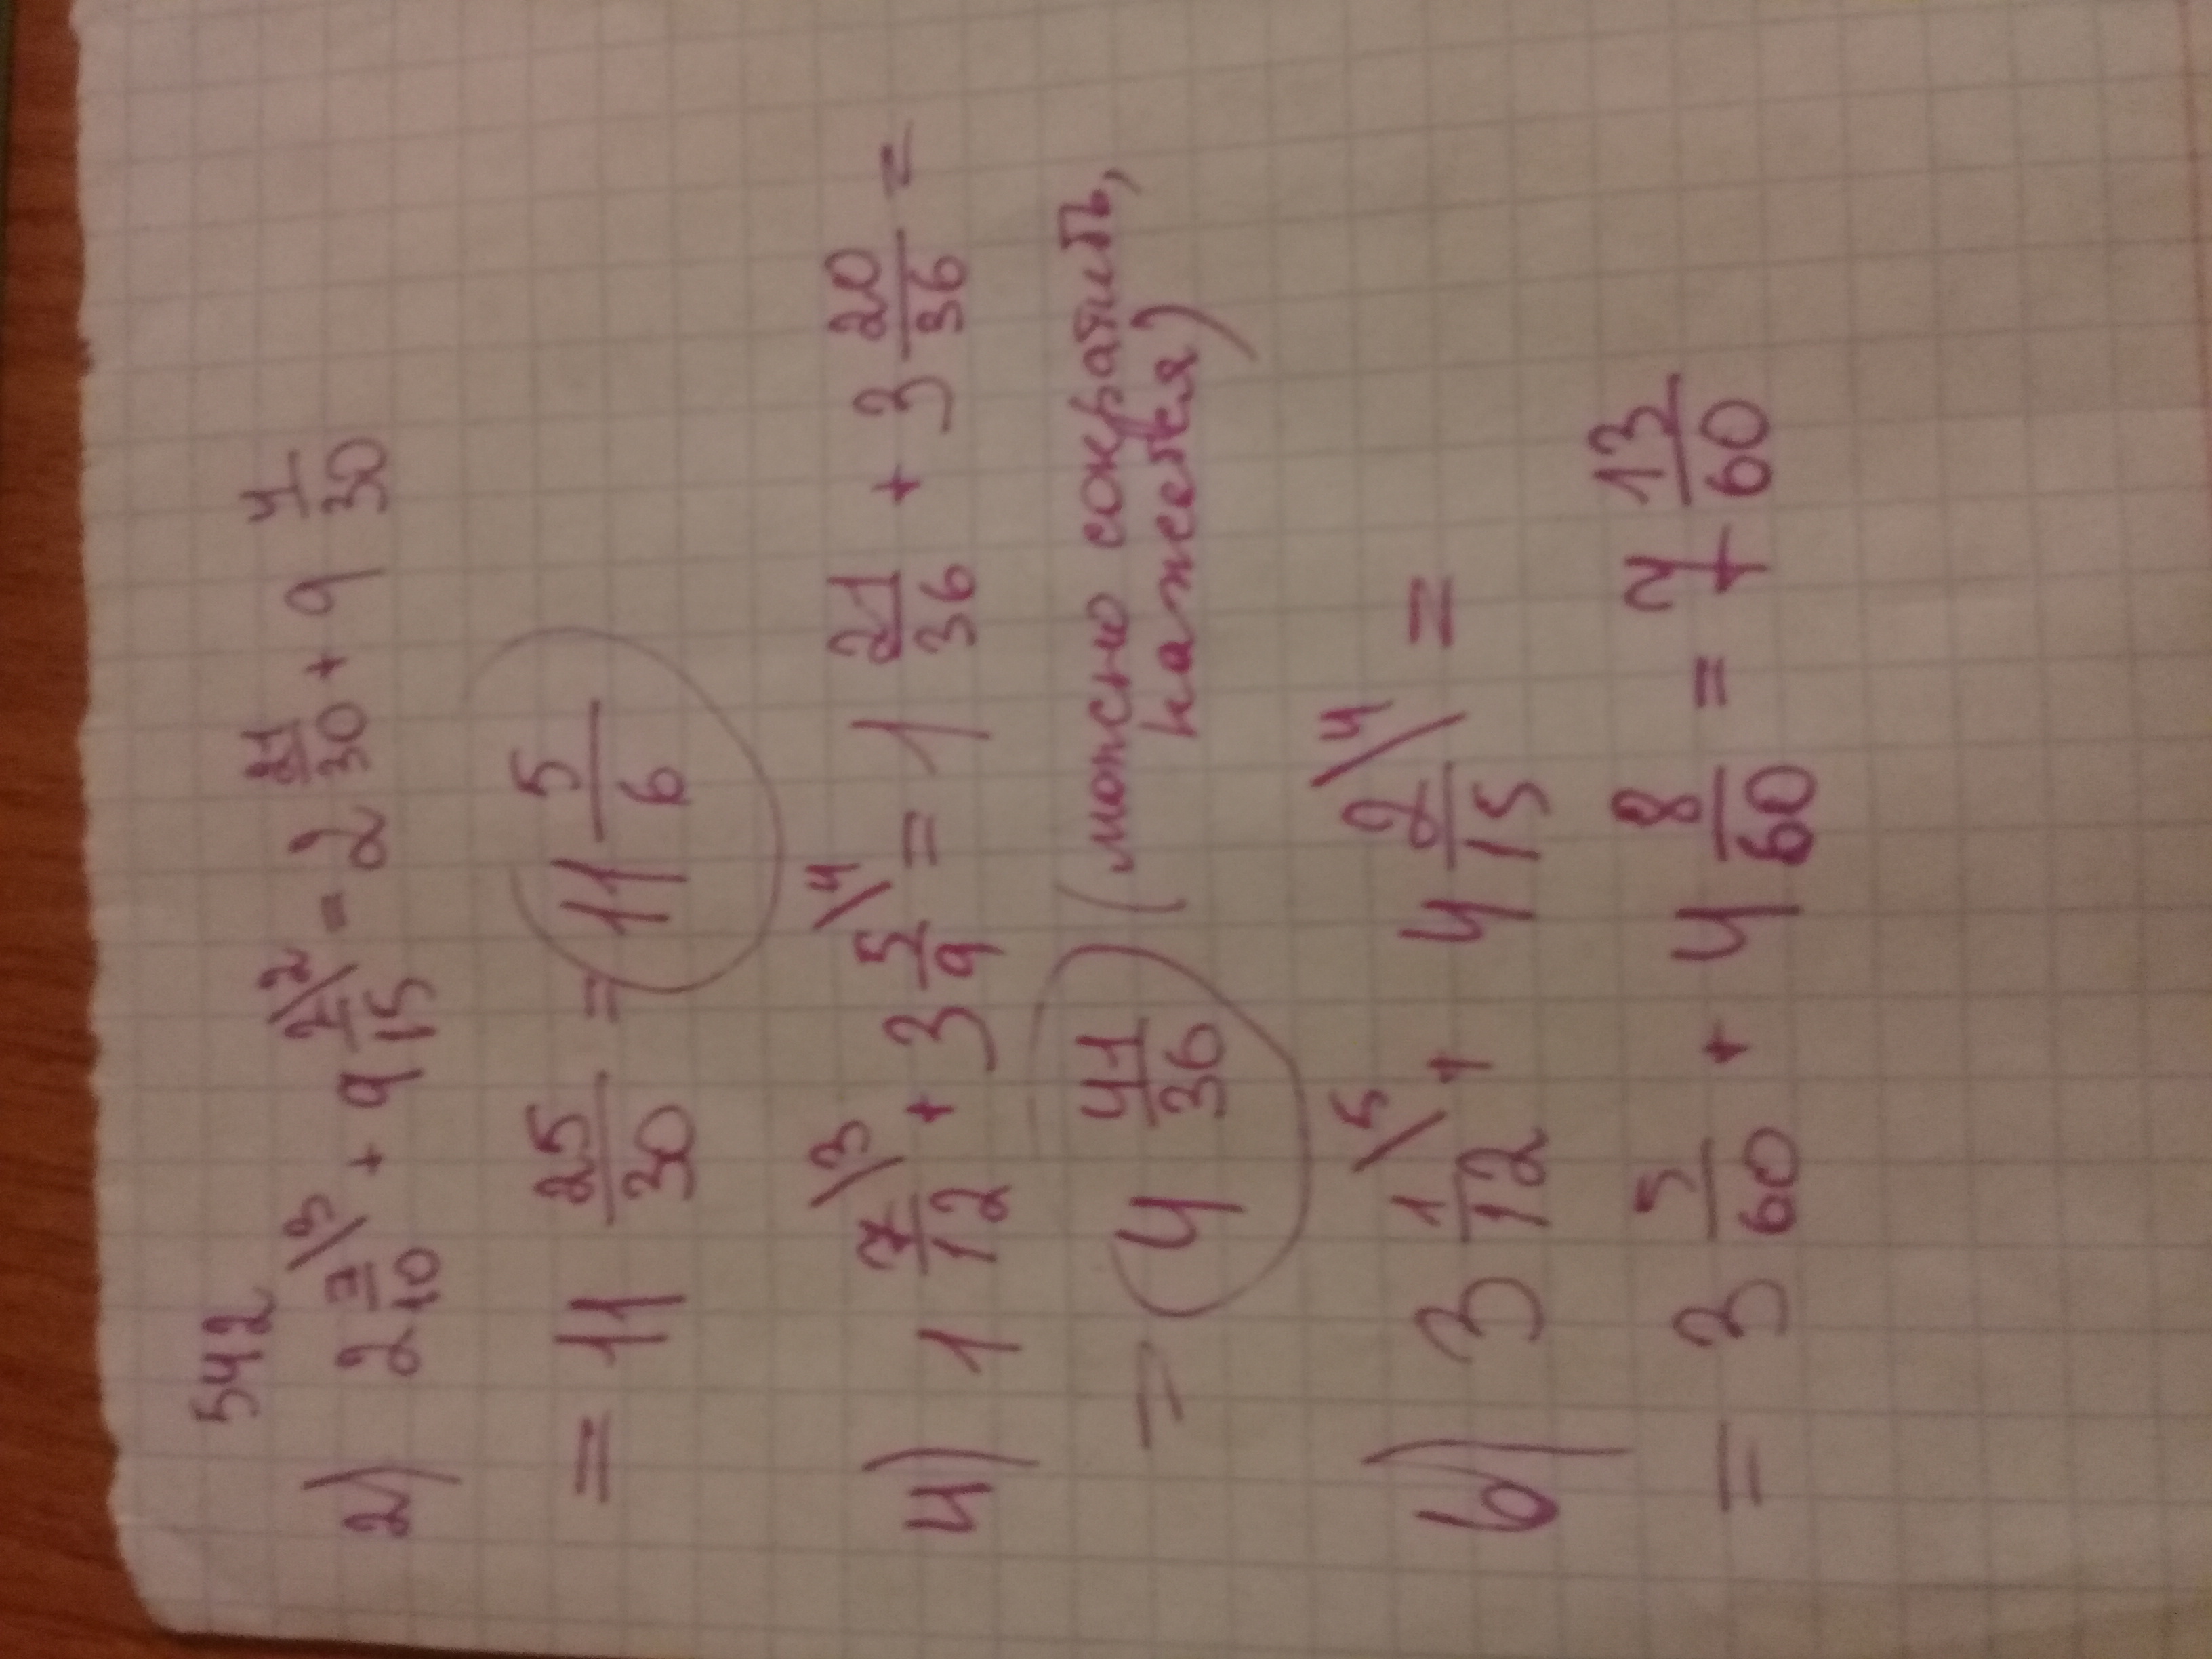 542
2) 2 7/10 \3 + 9 2/15 \2 = 2 21/30 + 9 4/30
= 11 25/30 = 11 5/6
4) 1 7/12 \3 + 3 5/9 \4 = 1 21/36 + 3 20/36 =
= 4 41/36 (можно сократить,
кажется)
6) 3 1/12 \5 + 4 2/15 \4 =
= 3 5/60 + 4 8/60 = 7 13/60